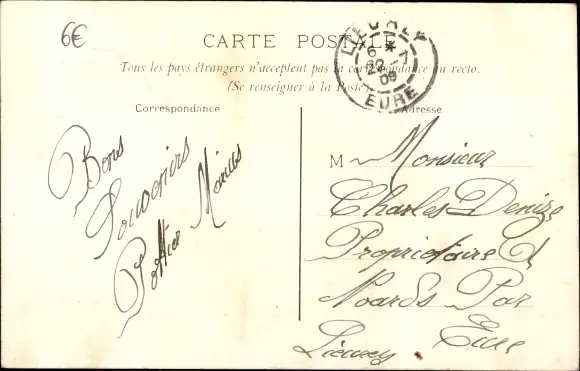 6€
CARTE POSTALE
Tous les pays étrangers n'acceptent pas la correspondance au recto.
(Se renseigner à la Poste)
Correspondance
Adresse
EURE
Bons
Souvenirs
M Monsieur
Charles Denize
Propriétaire à
Noards Par
Lieurey Eure